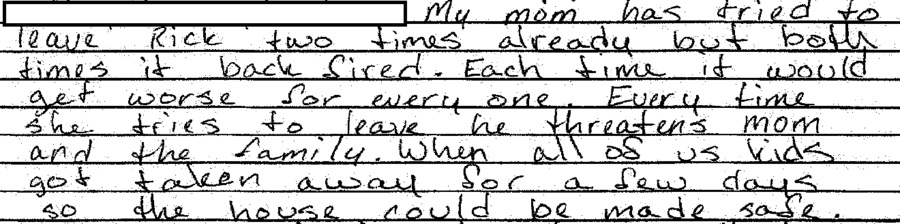 My mom has tried to
leave Rick two times already but both
times it back fired. Each time it would
get worse for every one. Every time
she tries to leave he threatens mom
and the family. When all of us kids
got taken away for a few days
so the house could be made safe.